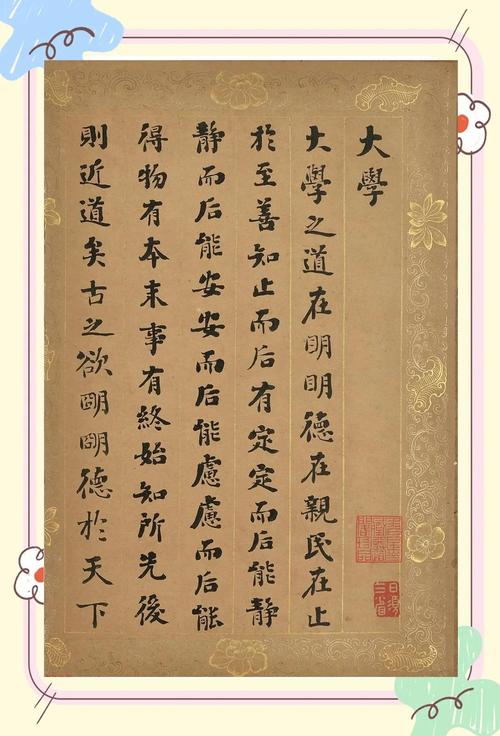 大學
大學之道在明明德在親民在止
於至善知止而后有定定而后能静
静而后能安安而后能慮慮而后能
得物有本末事有終始知所先後
則近道矣古之欲明明德於天下